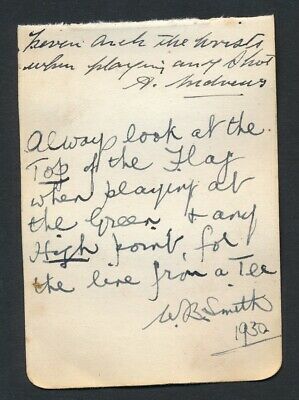 Never Arch the Wrists
when playing any Shot
A. Andrews
Always look at the
Top of the Flag
when playing at
the Green & any
High point, for
the line from a Tee
W.B. Smith
1930